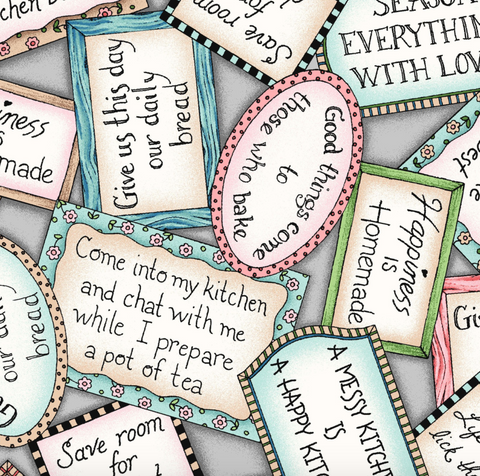 Save room
for
SEASON
EVERYTHING
WITH LOV
Give us this day
our daily
bread
Good things come
to
those who bake
iness
is
made
best
Happiness
is
Homemade
Come into my kitchen
and chat with me
while I prepare
a pot of tea
our daily
bread
Gi
A MESSY KITCH
IS
A HAPPY KIT
Save room
for
Life
lick th